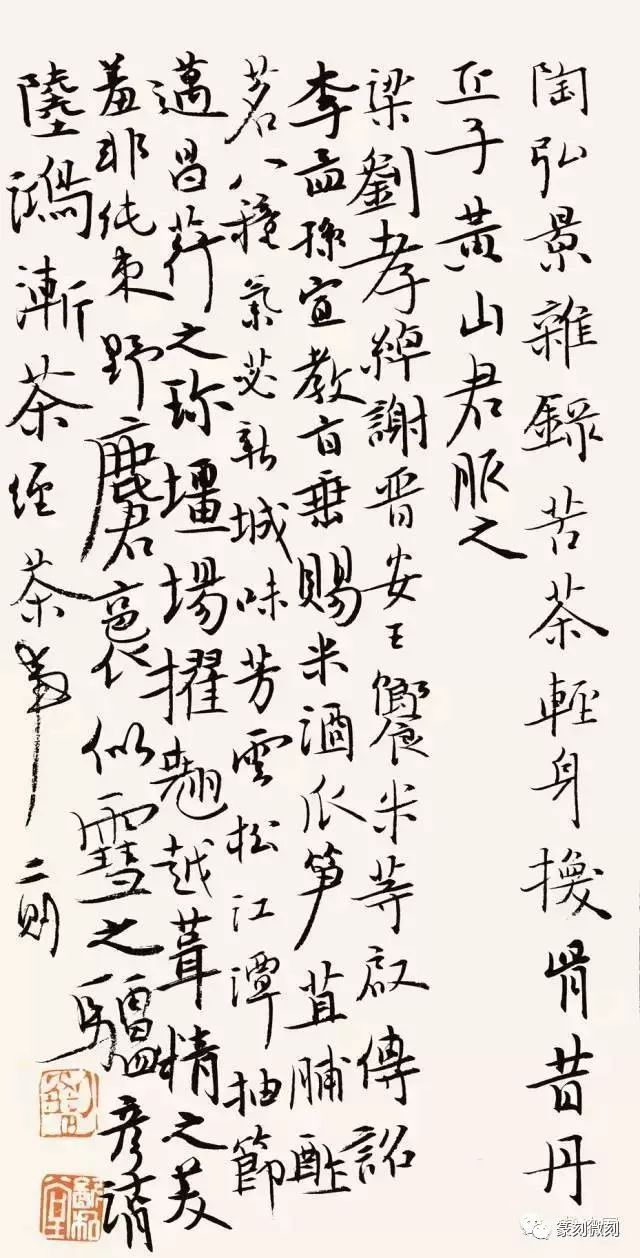 陶弘景雜錄苦茶輕身換骨昔丹
丘子黃山君服之
梁劉孝綽謝晋安王饟米等啟傳詔
李孟孫宣教旨垂賜米酒瓜筍菹脯酢
茗八種氣苾新城味芳雲松江潭抽節
邁昌荇之珍壃場擢翹越葺精之美
羞非純束野麏裛似雪之驢彥清
陸鴻漸茶經茶事二則
篆刻微刻